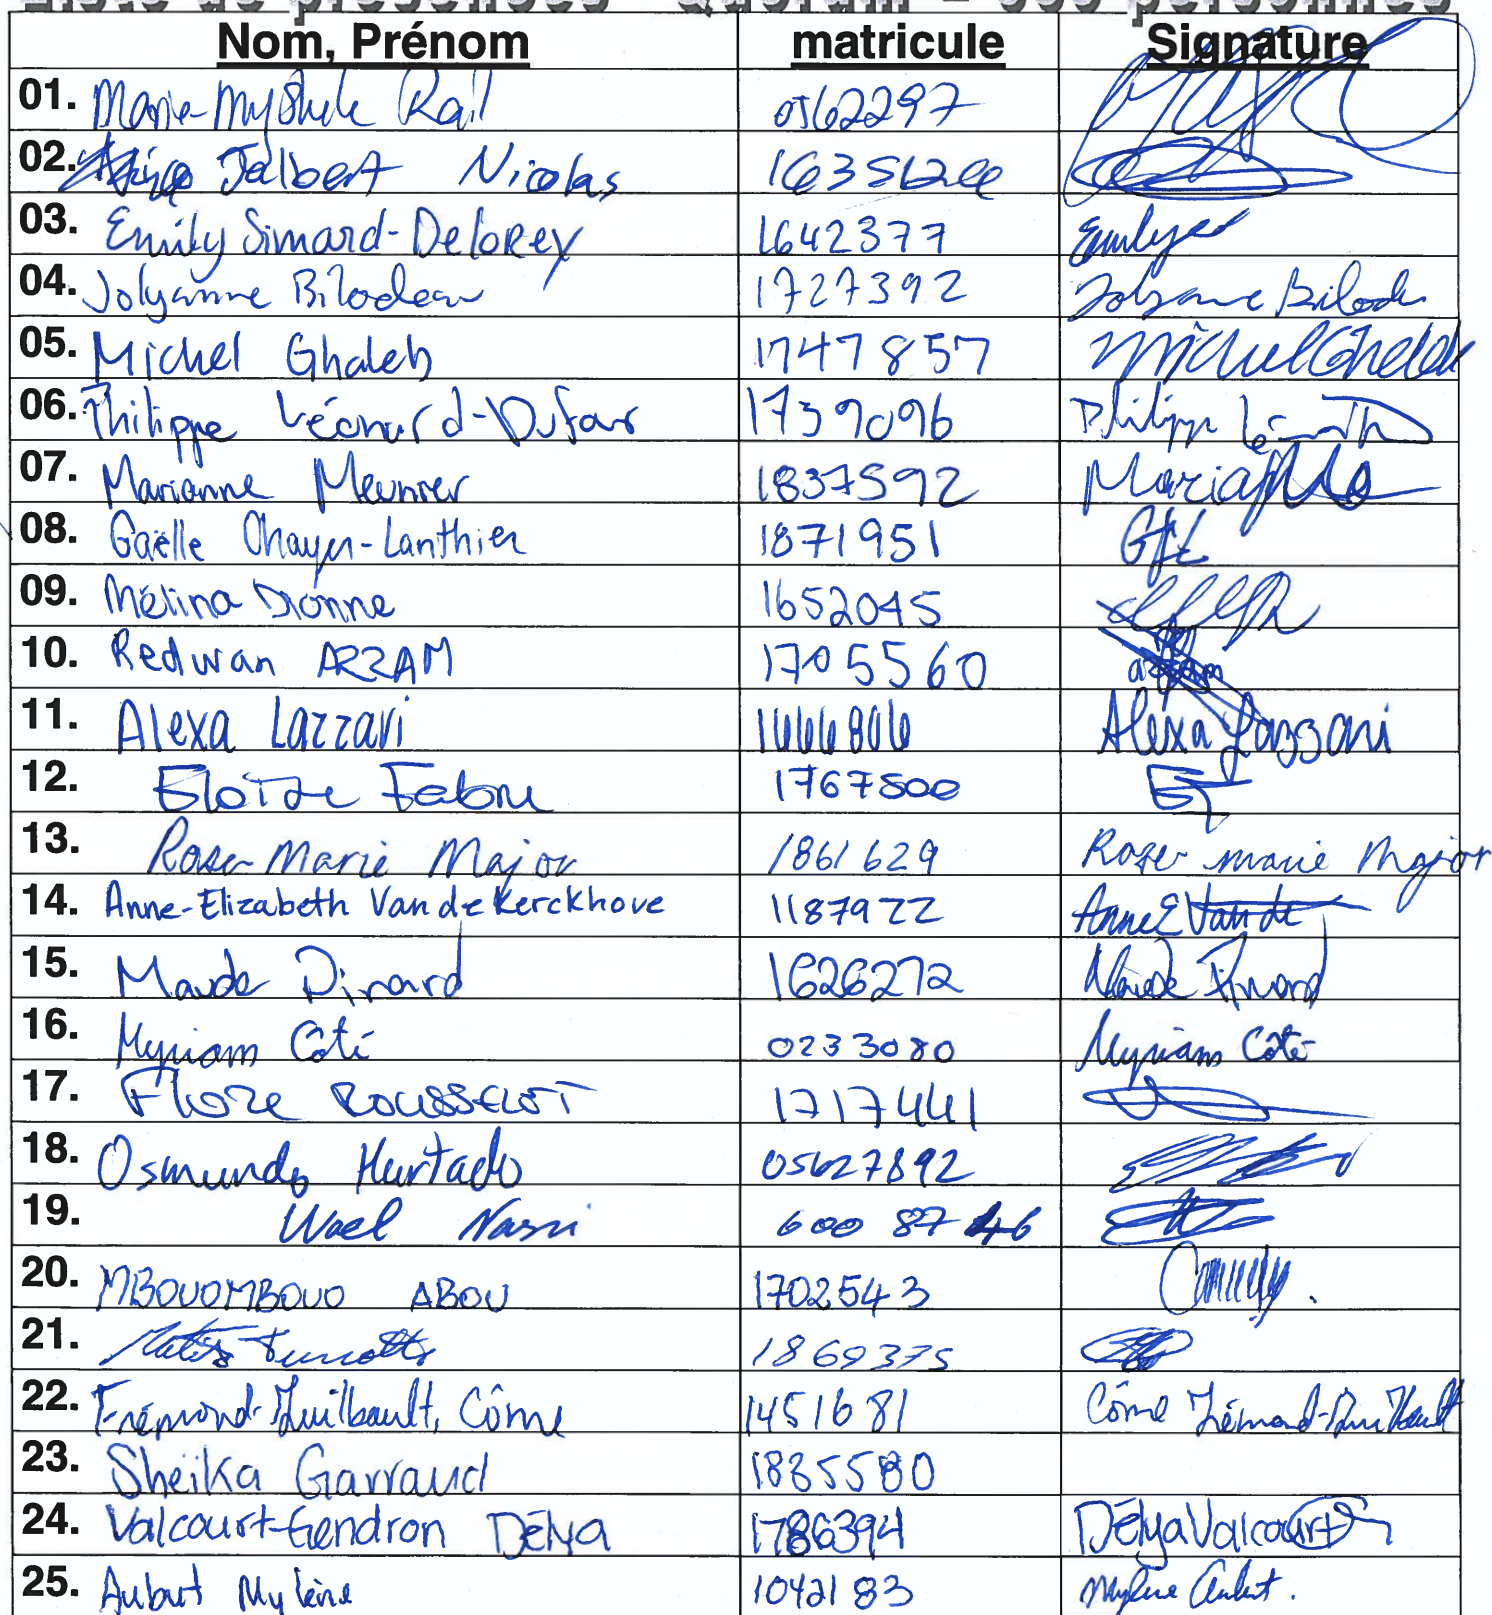 Liste de présences - Quorum = personnes
Nom, Prénom matricule Signature
01. Marie-Myshele Rail 0562297
02. Jalbert Nicolas
03. Emily Simard-Delorey 1642377 Emily
04. Jolyanne Bilodeau 1727392 Jolyanne Bilodeau
05. Michel Ghaleb 1747857 Michel Ghaleb
06. Philippe Léonard-Dufour 1739096 Philippe
07. Marianne Meunier 1837592
08. Gaëlle Chayer-Lanthier 1871951
09. Mélina Dionne 1652045
10. Redwan AZZAM 1705560 azzam
11. Alexa Lazzari 1666806 Alexa Lazzari
12. Eloïse Fabre 1767500 EF
13. Rose-Marie Major 1861629 Rose-marie Major
14. Anne-Elizabeth Van de Kerckhove 1187922 Anne E Van de
15. Maude Pinard 1626272 Maude Pinard
16. Myriam Côté 0233080 Myriam Côté
17. Flore ROUSSELOT 1717441
18. Osmundo Hurtado 05627892
19. Wael Nasri 600 87 46
20. MBOUOMBOUO ABOU 1702543
21. Turcotte 1869375
22. Frémond-Guilbault, Côme 1451681 Côme Frémond-Guilbault
23. Sheïka Garraud 1835580
24. Valcourt-Gendron Délya 1786394 Délya Valcourt
25. Aubut Mylène 1042183 Mylène Aubut.